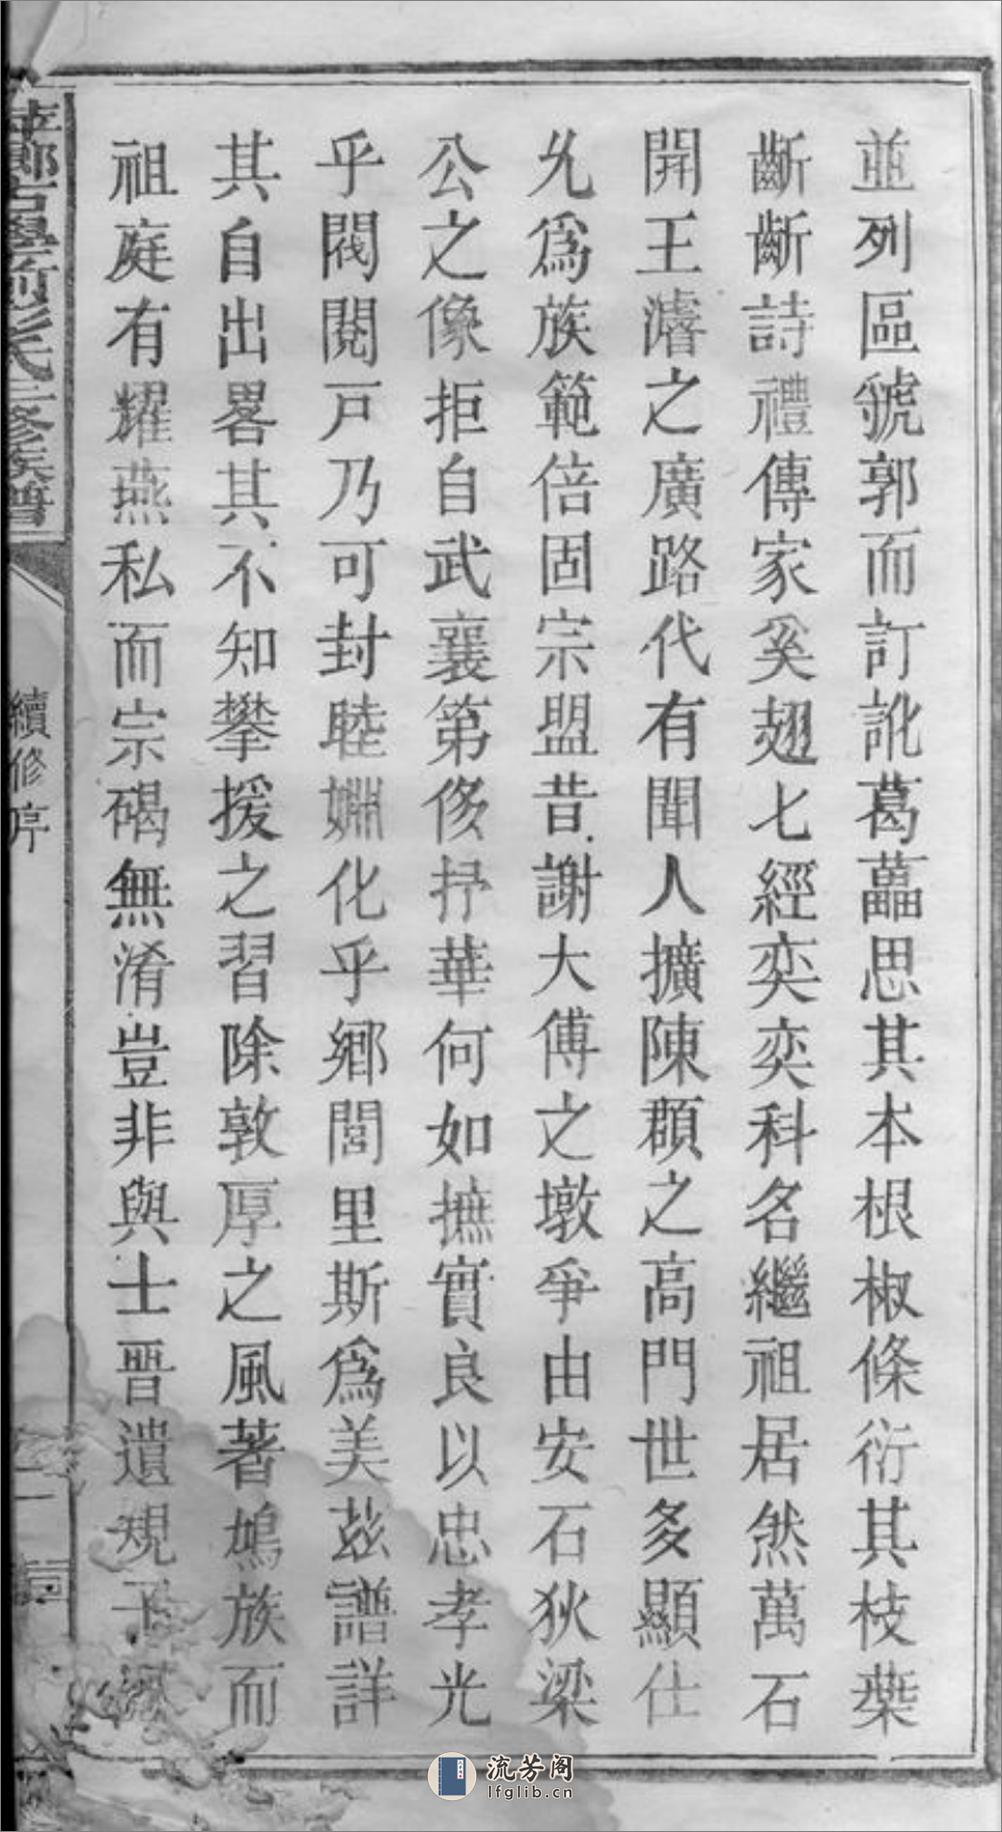 並列區號郭而訂訛葛藟思其本根椒條衍其枝葉
齗齗詩禮傳家奚翅七經奕奕科名繼祖居然萬石
開王濬之廣路代有聞人擴陳頵之高門世多顯仕
允爲族範倍固宗盟昔謝大傅之墩爭由安石狄梁
公之像拒自武襄第侈抒華何如摭實良以忠孝光
乎閥閱戸乃可封睦婣化乎鄉閭里斯爲美玆譜詳
其自出畧其不知攀援之習除敦厚之風著鳩族而
祖庭有耀燕私而宗碣無淆豈非與士晋遺規
續修序
流芳阁
lfglib.cn